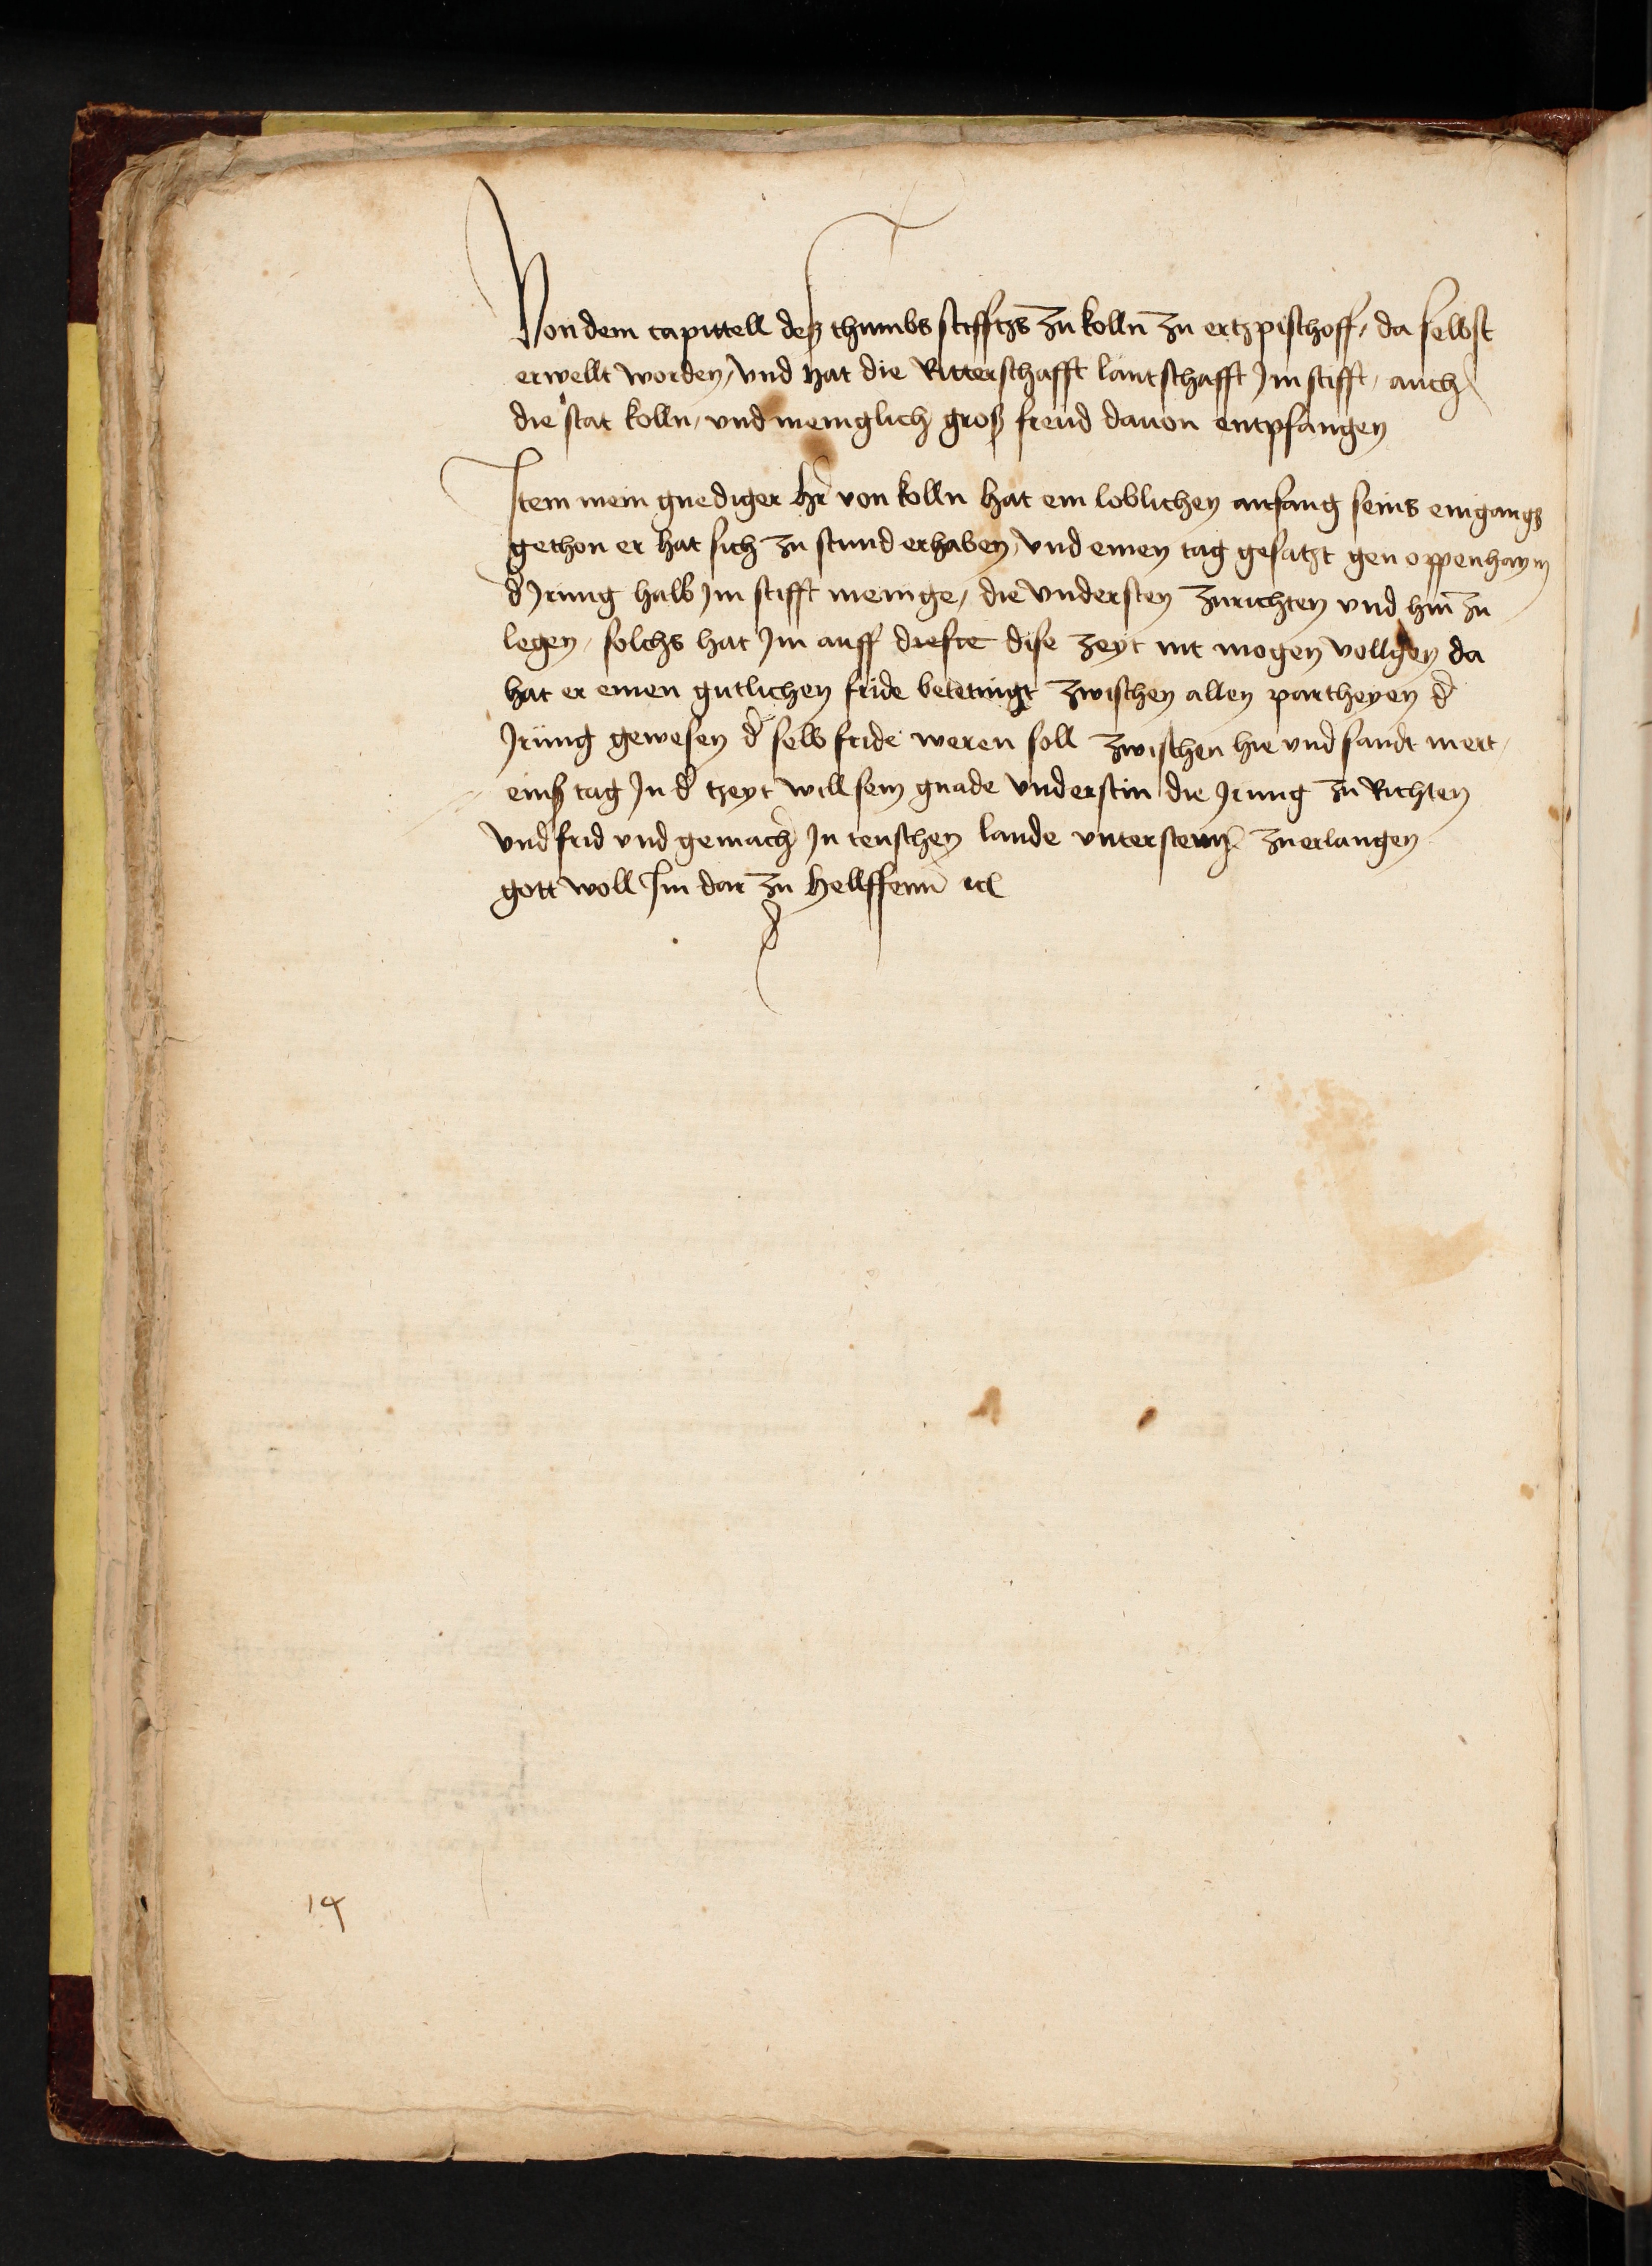 Von dem capittell deß thumbs stifftzs zu kolln̄ zu ertzpischoff, da selbst
erwellt worden, vnd hat die Ritterschafft lantschafft Jm stifft, auch
die stat kolln, vnd meniglich groß freud dauon entpfangen
Jtem mein gnediger hr̄ von kolln hat ein loblichen anfang seins eingangs
gethon er hat sich zu stund erhaben, vnd einen tag gesatzt gen oppenhaym
d' Jrung halb Jm stifft meinge, die vndersten zurichten vnd hin̄ zu
legen, solchs hat Jm auff dise zeyt nit mogen vollgen da
hat er einen gutlichen fride beteingt zwischen allen partheyen d'
Jrung gewesen d' selb fride weren soll zwischen hie vnd sandt mert,
einß tag Jn d' tzeyt will sein gnade vnderstin die Jrung zu Richten
vnd frid vnd gemach Jn teuschen lande vntersten zuerlangen
gott woll Jm dar zu hellffenn ꝛc
14